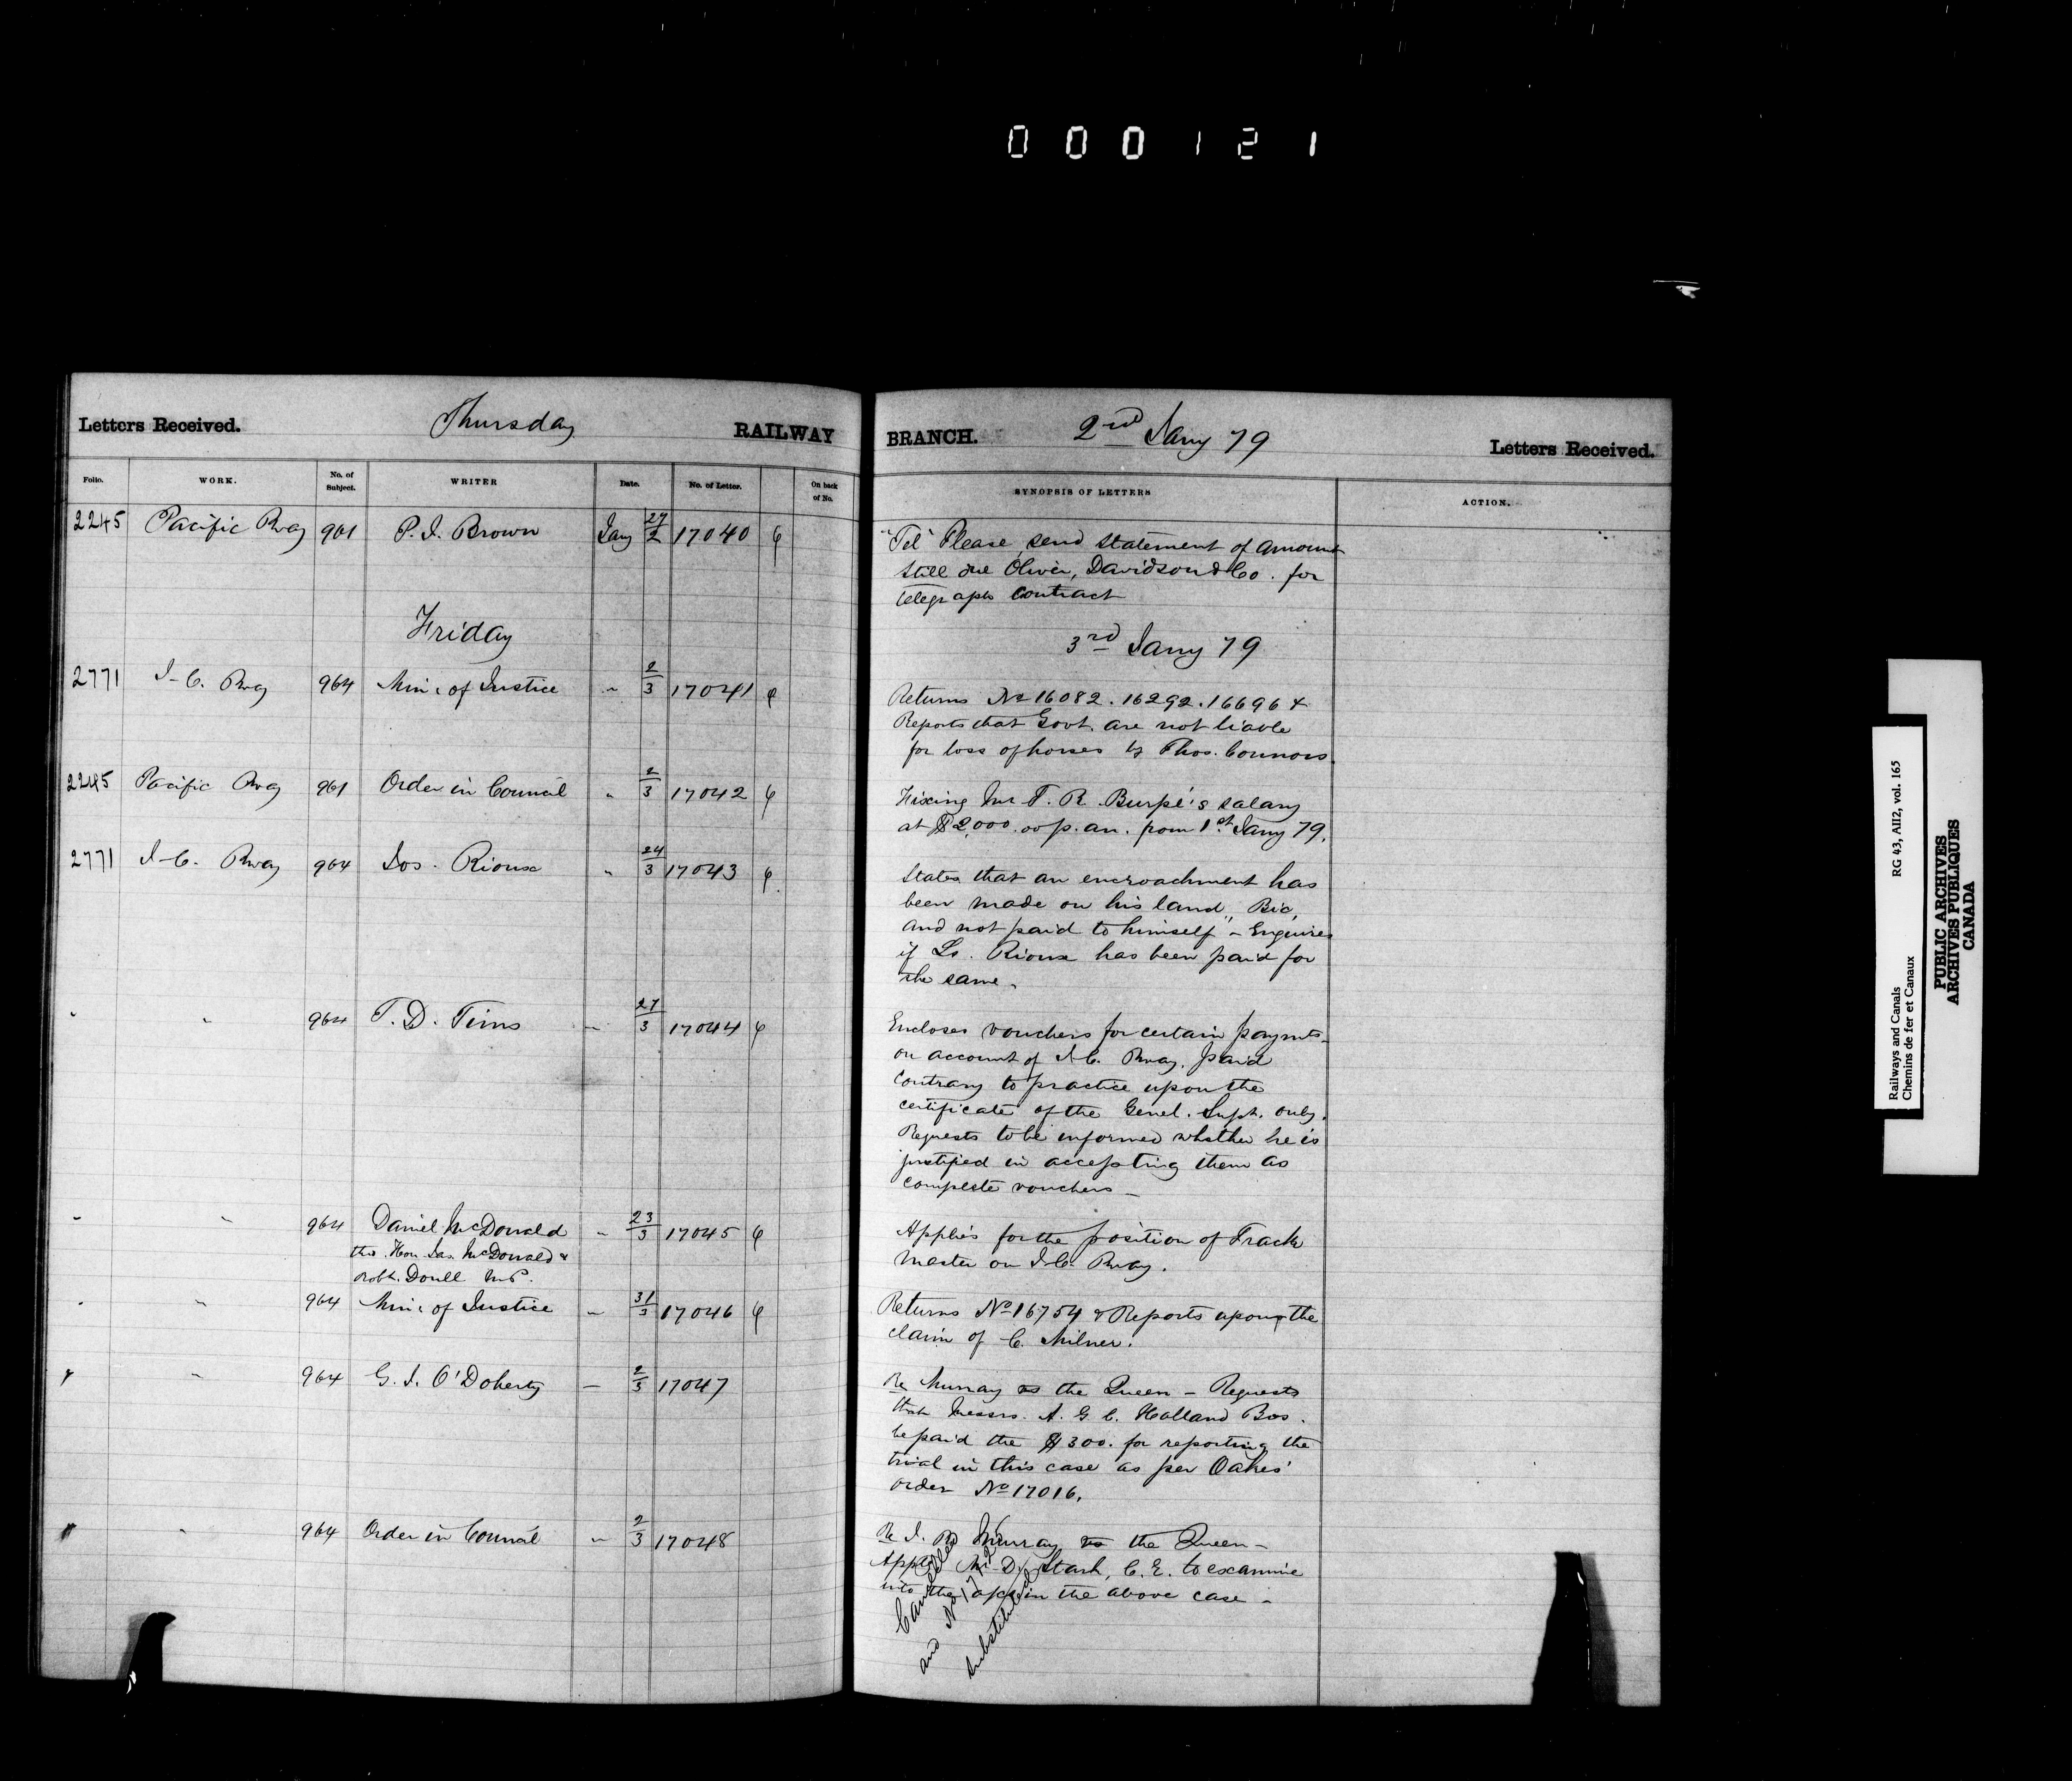 000121
Letters Received. Thursday RAILWAY BRANCH. 2nd Jany 79 Letters Received.
Folio. WORK. No. of Subject. WRITER Date. No. of Letter. On back of No. SYNOPSIS OF LETTERS ACTION.
2245 Pacific Rway 961 P. J. Brown Jany 27/2 17040
"Tel" Please send statement of amount
still due Oliver, Davidson & Co. for
telegraph contract
Friday 3rd Jany 79
2771 I-C. Rway 964 Min: of Justice " 2/3 17041
Returns No 16082. 16292. 16696 &
Reports that Govt. are not liable
for loss of horses by Thos. Connors.
2245 Pacific Rway 961 Order in Council " 2/3 17042
Fixing Mr T. R. Burpé's salary
at $2,000.00 p. an. from 1st Jany 79.
2771 I-C. Rway 964 Jos. Rioux " 24/3 17043
States that an encroachment has
been made on his land, Bic,
and not paid to himself - Enquires
if Ls. Rioux has been paid for
the same.
" " 964 T. D. Tims " 27/3 17044
Encloses vouchers for certain paymts.
on account of I-C. Rway, paid
contrary to practice upon the
certificate of the Genel. Supt. only.
Requests to be informed whether he is
justified in accepting them as
complete vouchers -
" " 964 Daniel McDonald " 23/3 17045
thro. Hon. Jas. McDonald &
Robt. Doull M.P.
Applies for the position of Track
Master on I-C. Rway.
" " 964 Min: of Justice " 31/3 17046
Returns No 16754 & Reports upon the
claim of C. Milner.
" " 964 G. J. O'Doherty " 2/3 17047
Re Murray vs the Queen - Requests
that Messrs. A. G. C. Holland Bos.
be paid the $300. for reporting the
trial in this case as per Oakes'
order No 17016.
" " 964 Order in Council " 2/3 17048
Re J. R. Murray vs the Queen -
Appts Mr D. Stark, C.E. to examine
into the in the above case -
Cancelled
and No
substituted
Railways and Canals RG 43, AII2, vol. 165
Chemins de fer et Canaux
PUBLIC ARCHIVES
ARCHIVES PUBLIQUES
CANADA